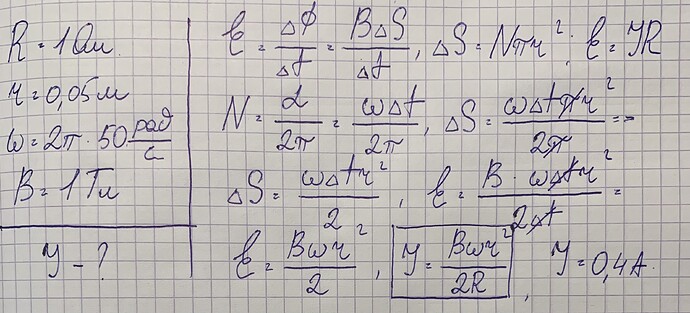 R = 1 Ом
r = 0,05 м
ω = 2π · 50 рад/с
B = 1 Тл
J - ?
ℰ = ΔΦ/Δt = BΔS/Δt, ΔS = Nπr²; ℰ = JR
N = α/2π = ωΔt/2π, ΔS = ωΔtπr²/2π =
ΔS = ωΔtr²/2, ℰ = B · ωΔtr²/2Δt =
ℰ = Bωr²/2, J = Bωr²/2R, J = 0,4 А.